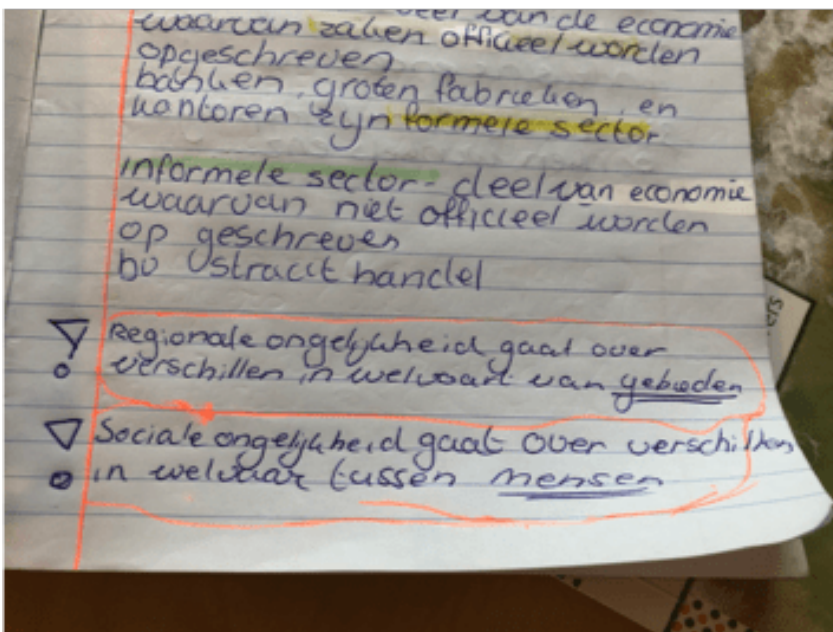 deel van de economie
waarvan zaken officieel worden
opgeschreven
banken, groten fabrieken, en
kantoren zijn formele sector
informele sector - deel van economie
waarvan niet officieel worden
op geschreven
bv straat handel
Regionale ongelijkheid gaat over
verschillen in welvaart van gebieden
Sociale ongelijkheid gaat over verschillen
in welvaar tussen mensen